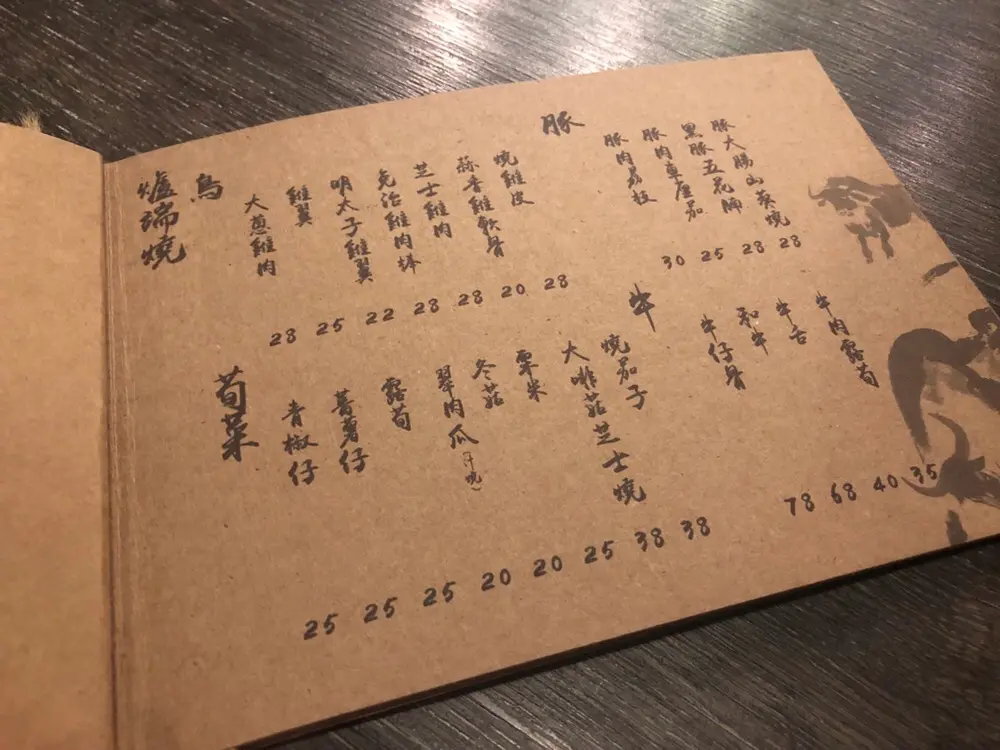 爐端燒
鳥
大蔥雞肉 28
雞翼 25
明太子雞翼 22
免治雞肉棒 28
芝士雞肉 28
蒜香雞軟骨 20
燒雞皮 28
豚
豚肉荔枝 30
豚肉車厘茄 25
黑豚五花腩 28
豚大腸山葵燒 28
荀菜
青椒仔 25
蕃薯仔 25
露荀 25
翠肉瓜(干燒) 20
冬菇 20
粟米 25
大啡菇芝士燒 38
燒茄子 38
牛
牛仔骨 78
和牛 68
牛舌 40
牛肉露荀 35